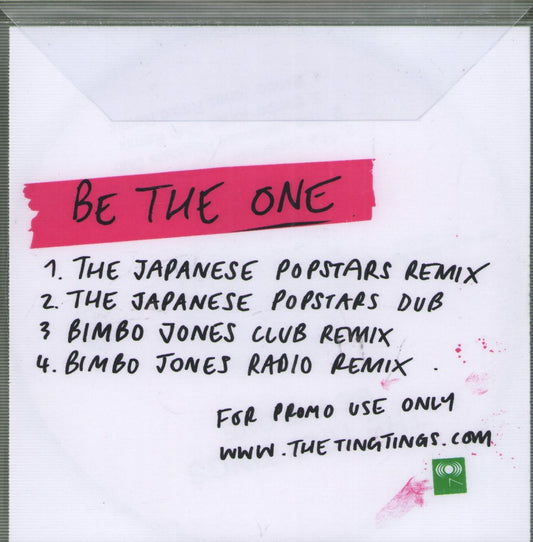 BE THE ONE
1. THE JAPANESE POPSTARS REMIX
2. THE JAPANESE POPSTARS DUB
3 BIMBO JONES CLUB REMIX
4. BIMBO JONES RADIO REMIX .
FOR PROMO USE ONLY
WWW.THETINGTINGS.COM
7